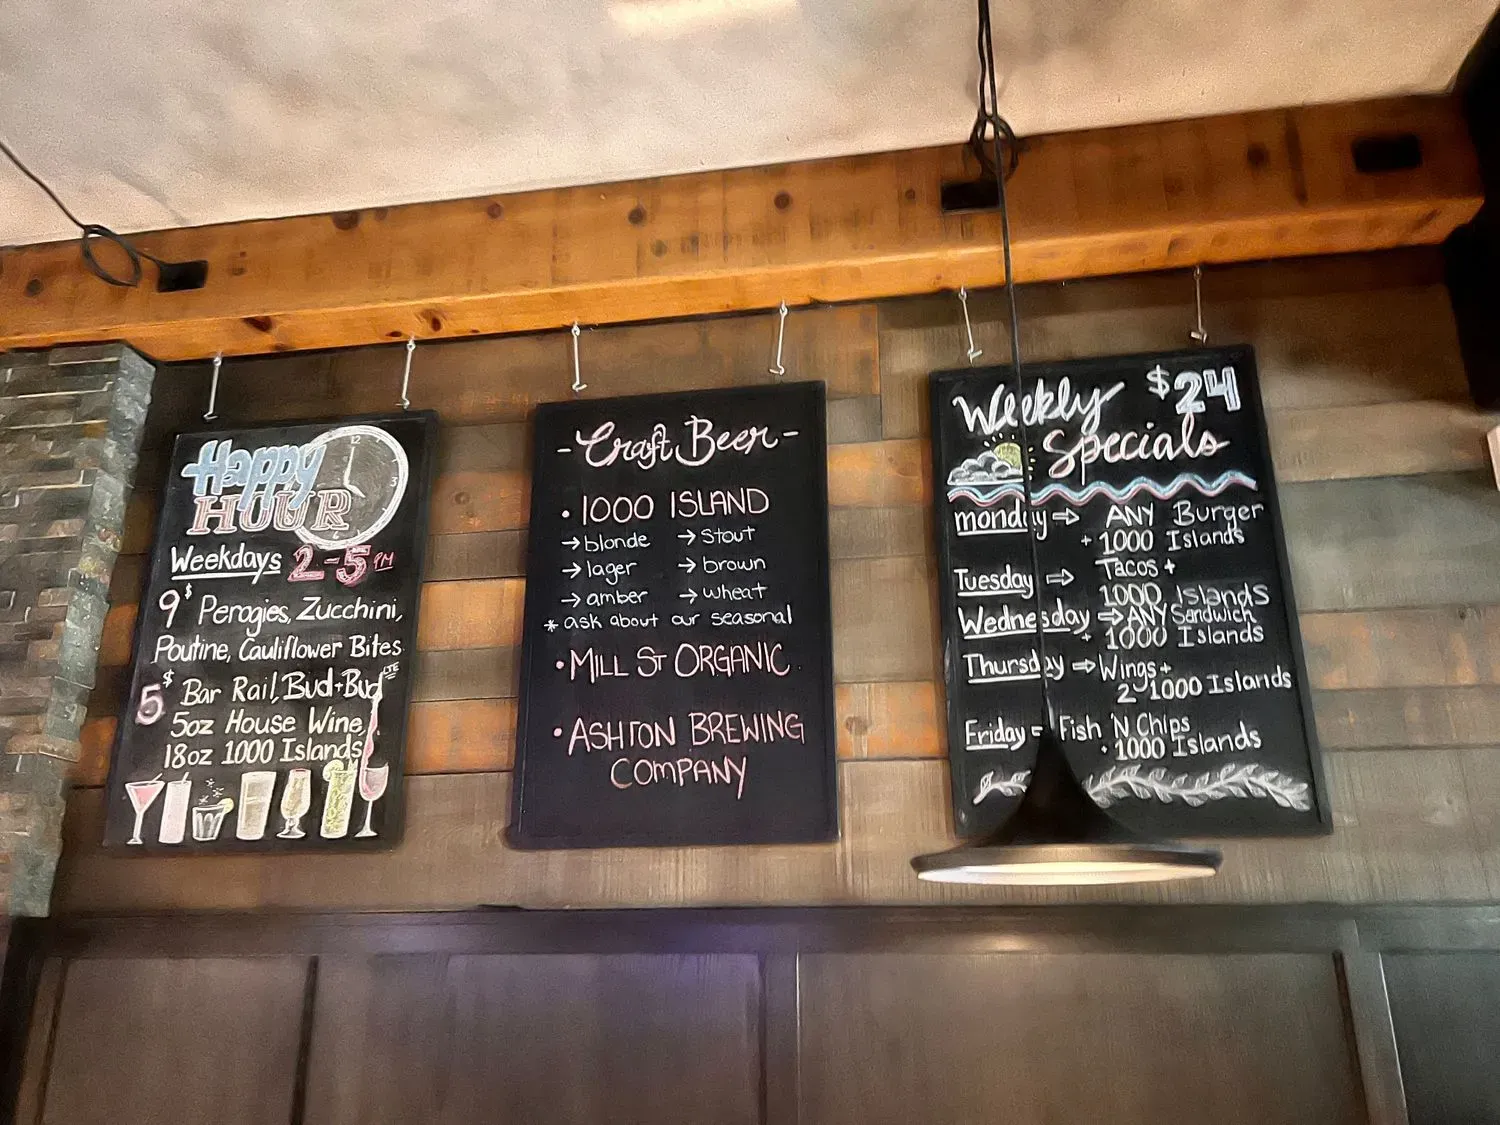 Happy
HOUR
12
3
6
Weekdays 2-5 PM
9$ Perogies, Zucchini,
Poutine, Cauliflower Bites
5$ Bar Rail, Bud+Bud LTE
5oz House Wine,
18oz 1000 Islands
- Craft Beer -
• 1000 ISLAND
→ blonde → stout
→ lager → brown
→ amber → wheat
* ask about our seasonal
• MILL ST ORGANIC
• ASHTON BREWING
COMPANY
Weekly $24
Specials
monday ⇒ ANY Burger
+ 1000 Islands
Tuesday ⇒ Tacos +
1000 Islands
Wednesday ⇒ ANY Sandwich
+ 1000 Islands
Thursday ⇒ Wings +
2 1000 Islands
Friday = Fish 'N Chips
• 1000 Islands